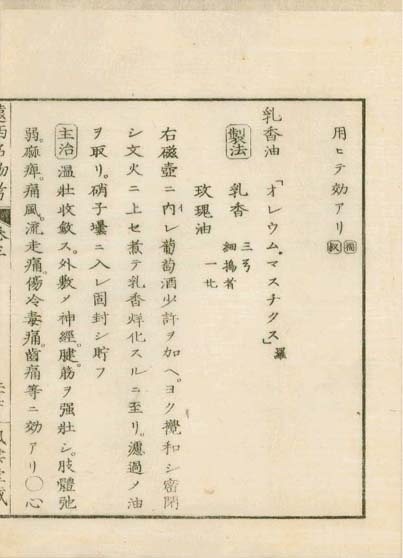 用ヒテ効アリ
乳香油「オレウム、マスチクス」羅
製法 乳香 三弓 細搗者
玫瑰油 一
右磁壺ニ内レ葡萄酒少許ヲ加ヘ。ヨク攪和シ密閉
シ文火ニ上セ煮テ乳香烊化スルニ至リ。濾過メ油
ヲ取リ。硝子壜ニ入レ固封シ貯フ
主治 温壮收斂ス。外敷メ神經。腱。筋ヲ强壮シ。肢體弛
弱。麻痺。痛風。流走痛。傷冷毒痛。齒痛等ニ効アリ〇心
遠西名物考 巻三